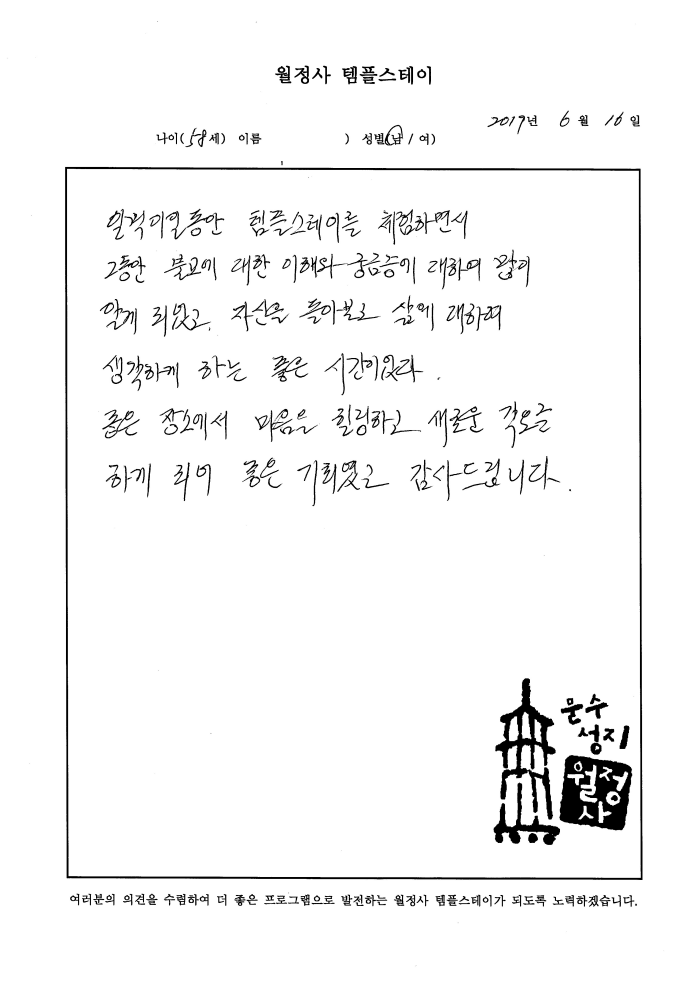 월정사 템플스테이
2019년 6월 16일
나이(58세) 이름 ) 성별(남 / 여)
일박이일동안 템플스테이를 체험하면서
그동안 불교에 대한 이해와 궁금증에 대하여 많이
알게 되었고, 자신을 돌아보고 삶에 대하여
생각하게 하는 좋은 시간이었다.
좋은 장소에서 마음을 힐링하고 새로운 각오를
하게 되어 좋은 기회였고 감사드립니다.
문수
성지
월정
사
여러분의 의견을 수렴하여 더 좋은 프로그램으로 발전하는 월정사 템플스테이가 되도록 노력하겠습니다.